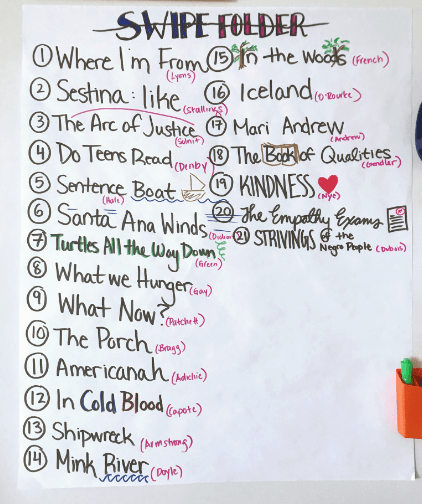 SWIPE FOLDER
1 Where I'm From (Lyons)
2 Sestina: like (Stallings)
3 The Arc of Justice (Solnit)
4 Do Teens Read (Denby)
5 Sentence Boat (Hale)
6 Santa Ana Winds (Didion)
7 Turtles All the Way Down (Green)
8 What we Hunger (Gay)
9 What Now? (Patchett)
10 The Porch (Bragg)
11 Americanah (Adichie)
12 In Cold Blood (Capote)
13 Shipwreck (Armstrong)
14 Mink River (Doyle)
15 In the Woods (French)
16 Iceland (O'Rourke)
17 Mari Andrew (Andrew)
18 The Book of Qualities (Gendler)
19 KINDNESS (Nye)
20 The Empathy Exams
21 STRIVINGS of the Negro People (Dubois)